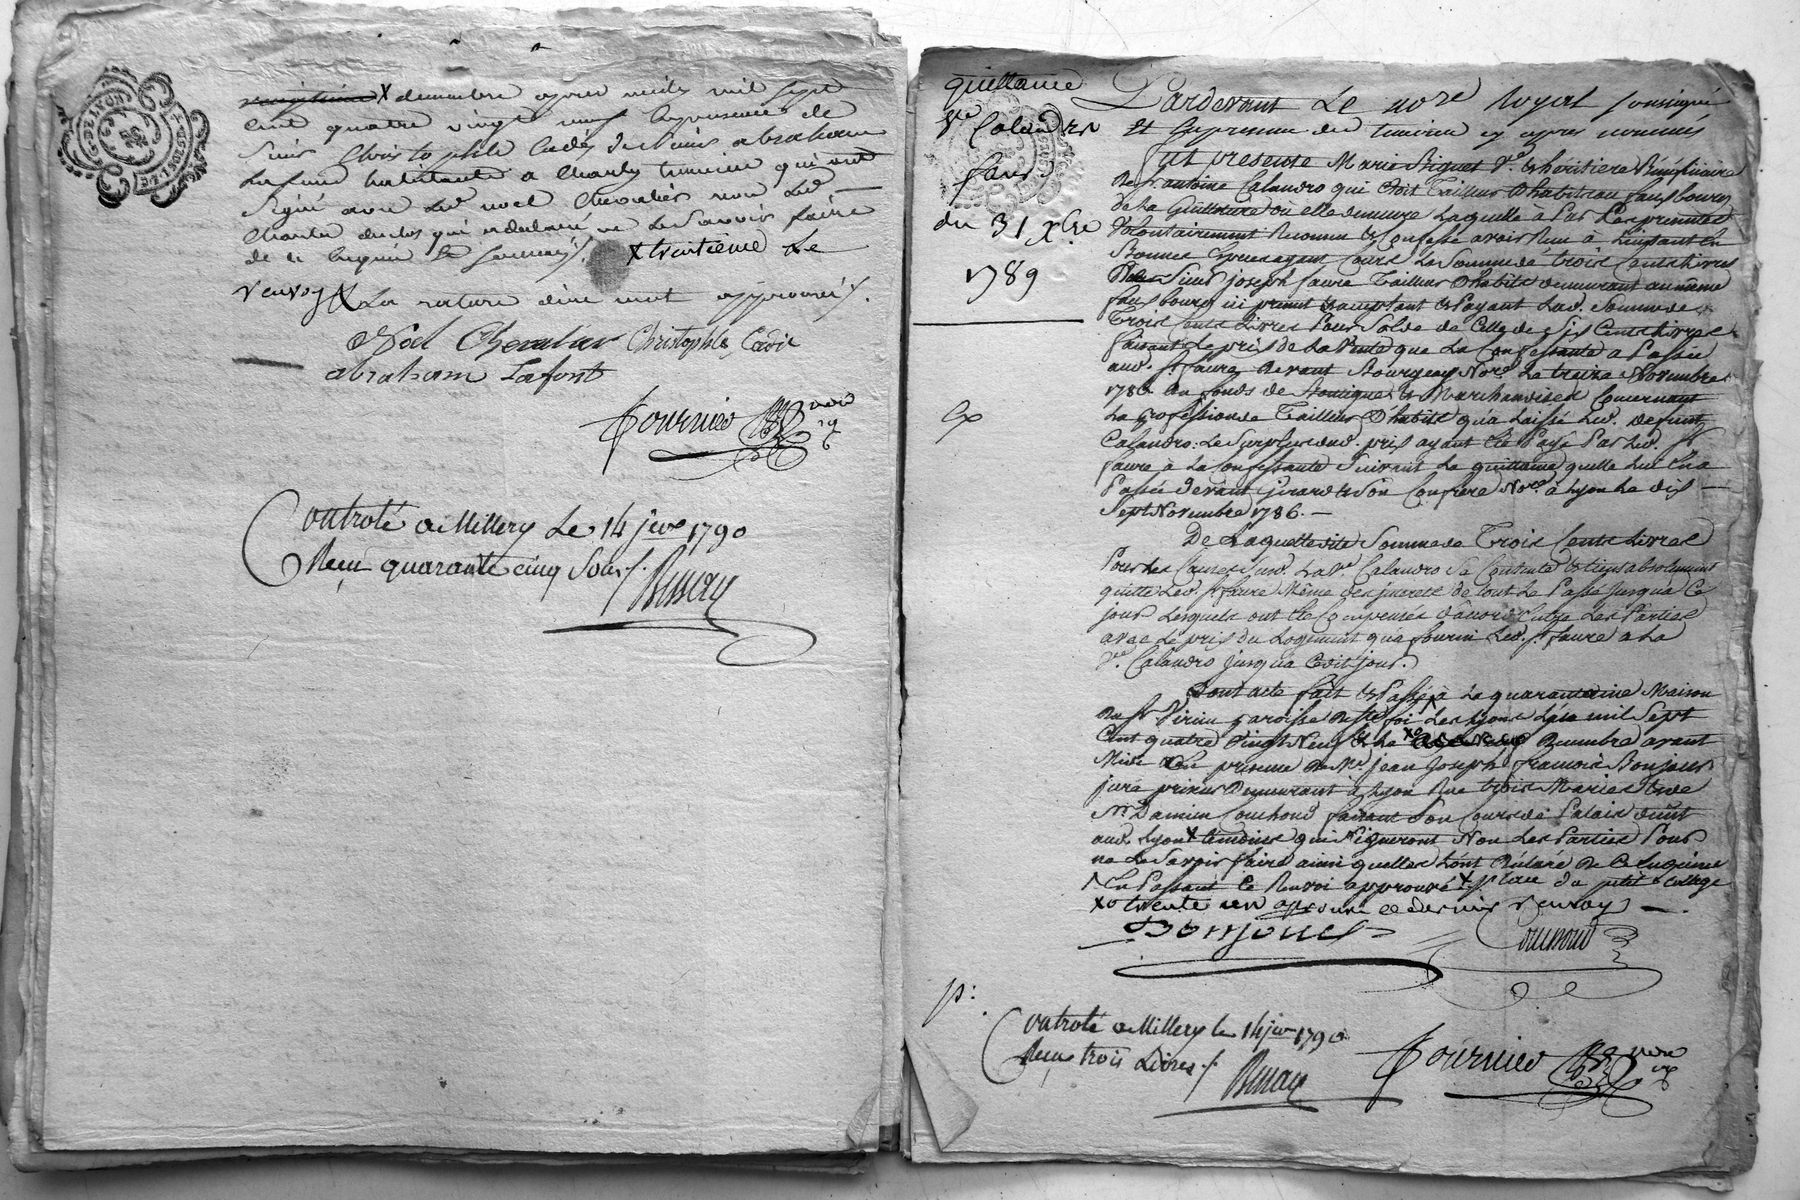 GEN. DE LYON
X decembre apres midy mil sept
cent quatre vingt neuf en presence de
Srs Christophle Cadis et de Sr abraham
Lafond habitants a Charly temoins qui ont
signé avec led. noel Chevalier non led.
Charles duclos qui a declaré ne le savoir faire
de ce enquis et sommés. X trentieme Le
renvoy X La rature d'un mot approuvés.
Noel Chevalier Christophle Cadi
abraham Lafont
fournier nore
Controlé a Millery le 14 jer 1790
Reçu quarante cinq sous
quittance
Ve Calandro
faure
du 31 Xbre
1789
Pardevant Le nore Royal soussigné
Et En presence des temoins cy apres nommés
fut presente Marie Riquet Ve & heritiere Bénéficiaire
De Sr. antoine Calandro qui Etoit Tailleur D'habits au fauxbourg
de La Guillotiere où elle demeure Laquelle a Par Les presentes
Volontairement Reconnu & Confessé avoir Reçu à L'instant En
Bonnes Especes ayant Cours La Somme de trois Cents Livres
De Sieur joseph faure Tailleur D'habits demeurant au meme
fauxbourg ici present Acceptant & Payant Lad. Somme de
Trois Cents Livres Pour Solde de Celle de Six Cents Livres
faisant Le prix de La Vente que La Confessante a Passée
aud. Sr. faure Devant Bourgeay Nore. Le treize Novembre
1786 du fonds de Boutique & Marchandises Concernant
La profession de Tailleur D'habits qu'a Laissé Led. Defunt
Calandro. Le Surplus dud. prix ayant Eté Payé Par Led. Sr
faure à La Confessante Suivant La quittance quelle Lui En a
Passée Devant Girard & Son Confrere Nores. à Lyon Le dix
Sept Novembre 1786.
De Laquelle dite Somme de Trois Cents Livres
Pour Les Causes Susd. Lad. Ve. Calandro Se Contente & tient absolument
quitte Led. Sr faure Même des interets de tout Le Passé Jusqu'à Ce
jour Lesquels ont Eté Compensés D'accord Entre Les Parties
avec Le prix du Logement qu'a fourni Led. Sr faure a La
Ve. Calandro jusqu'a Cedit jour.
Dont acte fait & Passé à La quarantaine Maison
Du Sr Paroisse Ste foi Les Lyon L'an mil Sept
Cent quatre Vingt Neuf & Le Xo Decembre avant
Midi En presence De Mr. jean Joseph françois Bonjour
juré priseur Demeurant à Lyon Rue trois Maries & de
Mr. Damien Couchoud faisant Son Cours de Palais dmt
aud. Lyon X temoins qui Signeront Non Les Parties Pour
ne Le Savoir faire ainsi quelles L'ont Declaré De Ce Enquises
En Passant Ce Renvoi approuvé X place du petit College
Xo trente un approuvé ce dernier renvoy
Bonjour Couchoud
p:
Controlé a Millery le 14 jer 1790
Reçu trois Livres
fournier nore